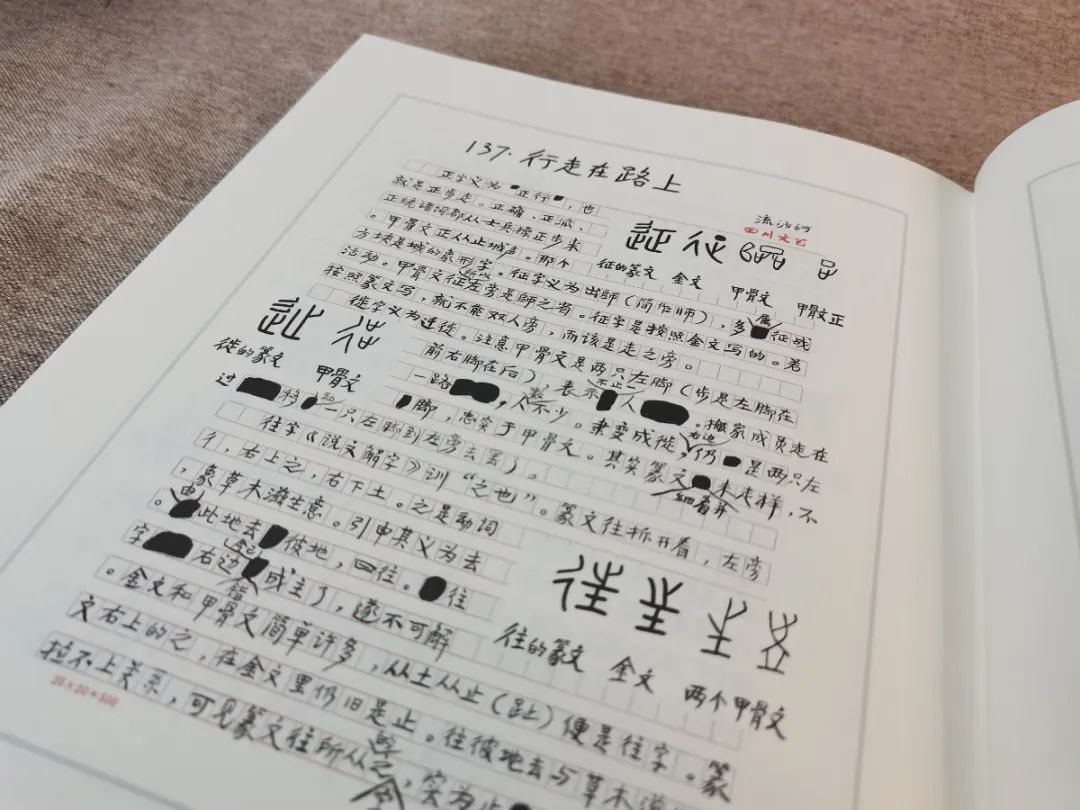 137. 行走在路上
流沙河
四川文艺
正字义为正行,也
就是正步走。正确、正派、
正统诸词都从士兵操正步来
。甲骨文正从止城声。那个
方块是城的象形字。征字义为出師(简作师),多属征战
活动。甲骨文征左旁是師之省。征字是按照金文写的。若
按照篆文写,就不能双人旁,而该是走之旁。
征的篆文 金文 甲骨文 甲骨文正
徙字义为迁徙。注意甲骨文是两只左脚(步是左脚在
前右脚在后),表示不止人。搬家成员走在
一路,人数不少。隶变成徙,右边仍是两只左
脚,忠实于甲骨文。其实篆文未走样,不
细看开
过移一只左脚到左旁去罢)。
徙的篆文 甲骨文
往字《说文解字》训“之也”。篆文往拆开看,左旁
彳,右上之,右下土。之是动词
,象草木滋生意。引申其义为去
。由此地去彼地,曰往。往
字右边错成主了,遂不可解
。金文和甲骨文简单许多,从土从止(趾)便是往字。篆
文右上的之,在金文里仍旧是止。往彼地去与草木滋
拉不上关系,可见篆文往所从之,实为止
往的篆文 金文 两个甲骨文
25×20=500